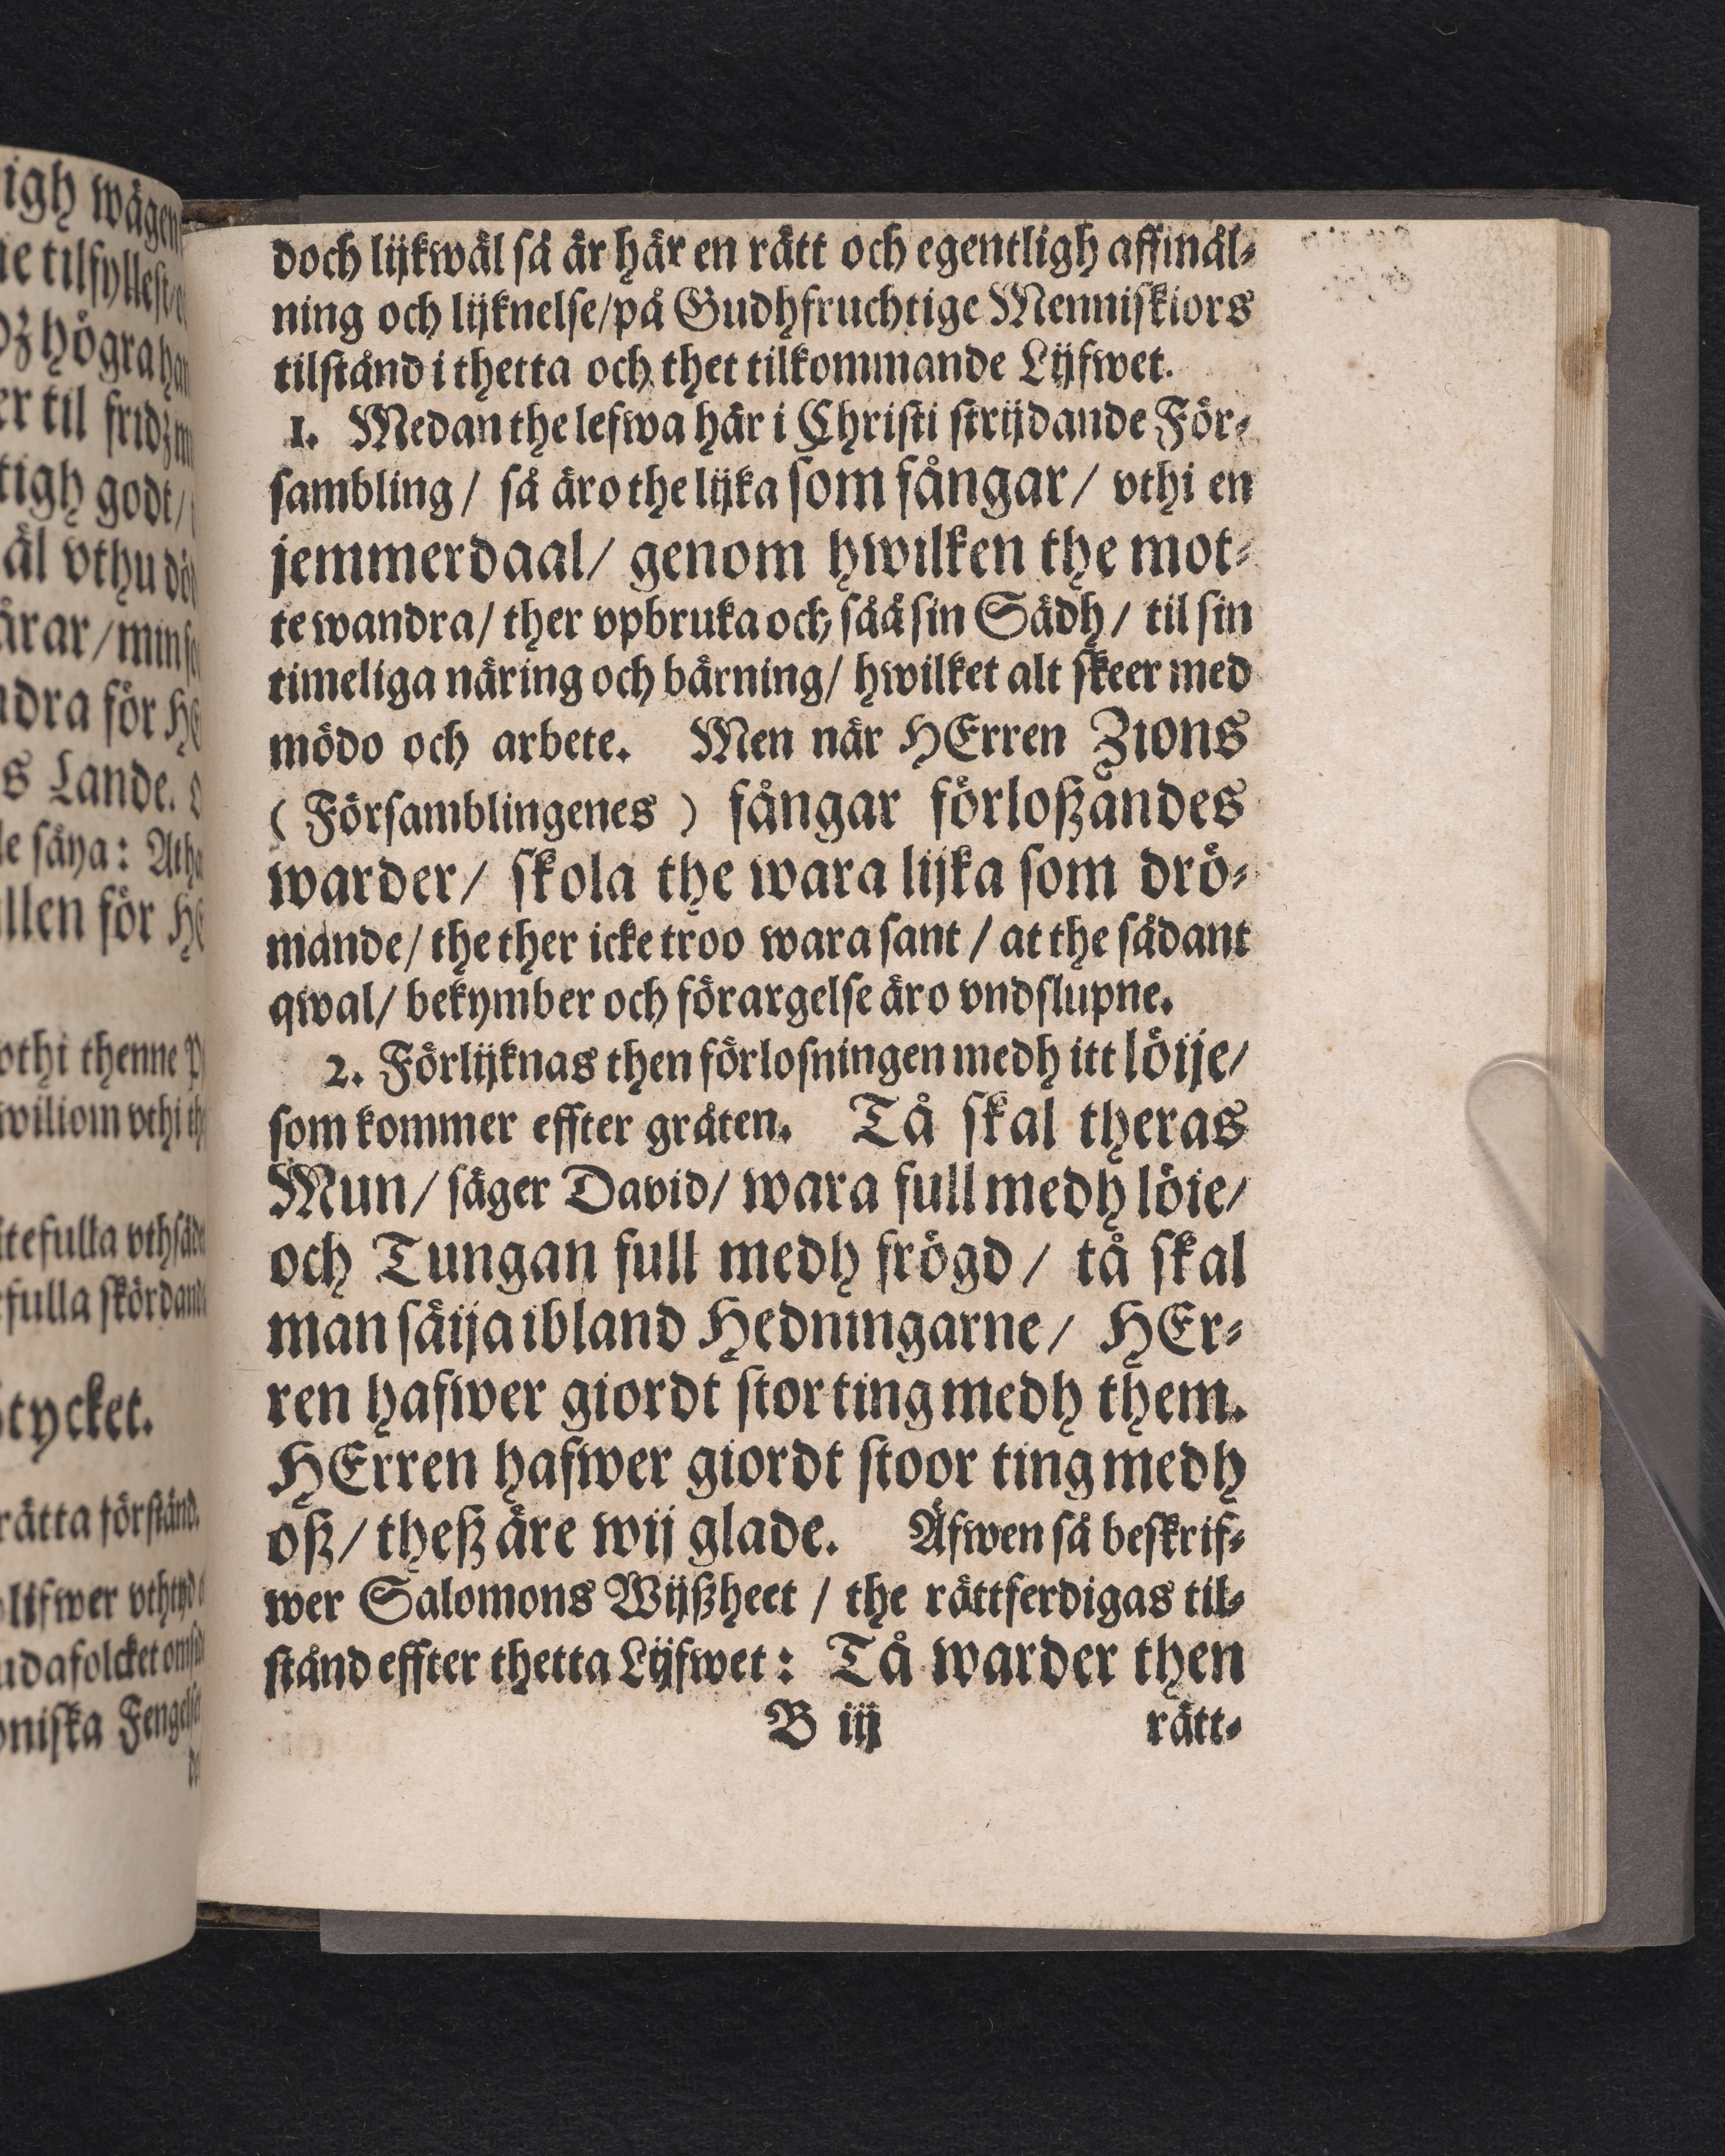 doch lijkwäl så är här en rätt och egentligh affmäl⸗
ning och lijknelse/på Gudhfruchtige Menniskiors
tilstånd i thetta och thet tilkommande Lijfwet.
1. Medan the lefwa här i Christi strijdande För⸗
sambling/ så äro the lijka som fångar/ vthi en
jemmerdaal/ genom hwilken the mot⸗
te wandra/ ther vpbruka och såå sin Sädh/ til sin
timeliga näring och bärning/ hwilket alt skeer med
mödo och arbete. Men när HErren Zions
( Församblingenes ) fångar förloßandes
warder/ skola the wara lijka som drö⸗
mande/ the ther icke troo wara sant / at the sådant
qwal/ bekymber och förargelse äro vndslupne.
2. Förlijknas then förlosningen medh itt löije/
som kommer effter gråten. Tå skal theras
Mun/ säger David/ wara full medh löie/
och Tungan full medh frögd/ tå skal
man säija ibland Hedningarne/ HEr⸗
ren hafwer giordt stor ting medh them.
HErren hafwer giordt stoor ting medh
oß/ theß äre wij glade. Äfwen så beskrif⸗
wer Salomons Wijßheet / the rättferdigas til⸗
stånd effter thetta Lijfwet: Tå warder then
B iij rätt⸗
igh wägen
tilfyllest
högra
til fridz
tigh godt/
vthu
för
s Lande.
säya:
för
vthi thenne
wiliom vthi
skördande
tycket.
rätta förstånd.
lifwer
niska Fengelset